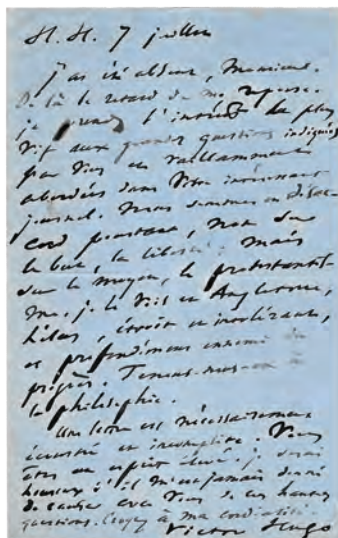 H. H. 7 juillet
J'ai été absent, Monsieur.
De là le retard de ma réponse.
je prends l'intérêt le plus
vif aux grandes questions indiquées
par vous et vaillamment
abordées dans votre intéressant
journal. Nous sommes en désac-
cord pourtant, non sur
le but, la liberté; mais
sur le moyen, le protestantis-
me, je le vois en Angleterre,
hélas, étroit et intolérant,
et profondément ennemi du
progrès. Tenons-nous en à
la philosophie.
Une lettre est nécessairement
écourtée et incomplète. Vous
êtes un esprit élevé; je serai
heureux s'il m'est jamais donné
de causer avec vous de ces hautes
questions. Croyez à ma cordialité.
Victor Hugo